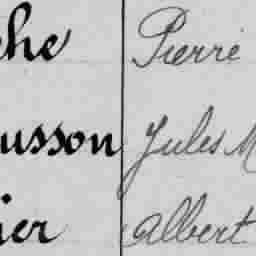 che Pierre
usson Jules M
ier Albert